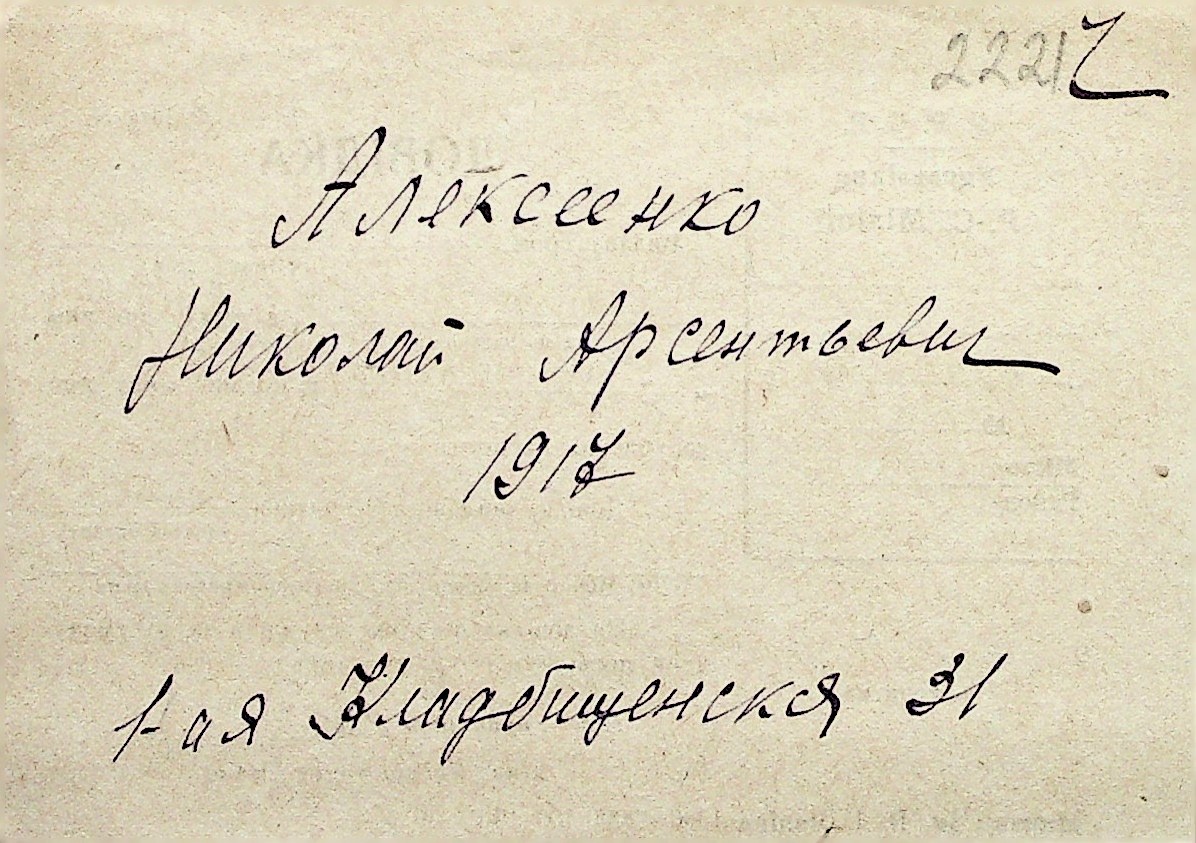 2221
Алексеенко
Николай Арсентьевич
1917
1-ая Кладбищенская 31